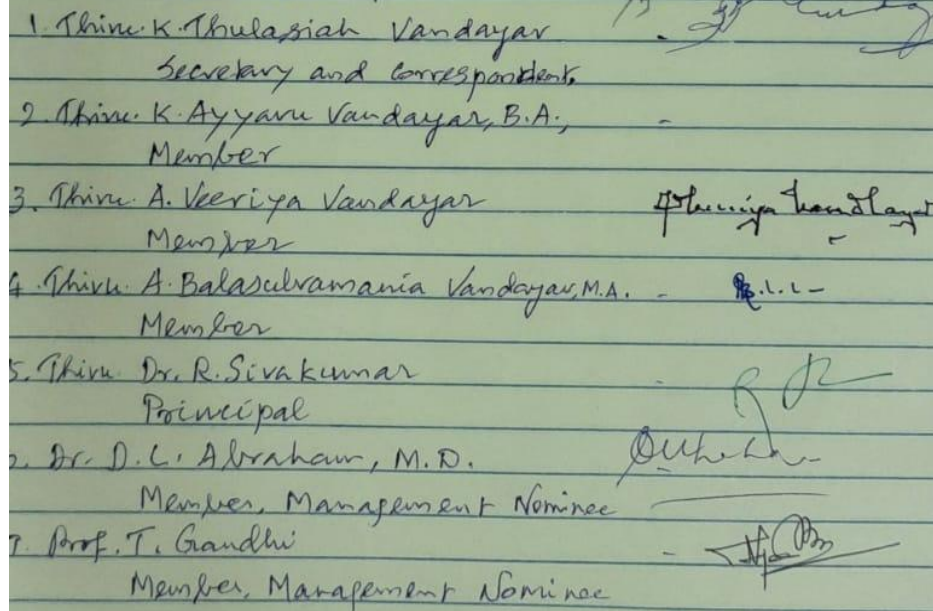 1. Thiru. K. Thulasiah Vandayar -
Secretary and Correspondent,
2. Thiru. K. Ayyaru Vandayar, B.A., -
Member
3. Thiru. A. Veeriya Vandayar
Member
4. Thiru. A. Balasubramania Vandayar, M.A. -
Member
5. Thiru. Dr. R. Sivakumar -
Principal
Dr. D.L. Abraham, M.D.
Member, Management Nominee
7. Prof. T. Gandhi -
Member, Management Nominee